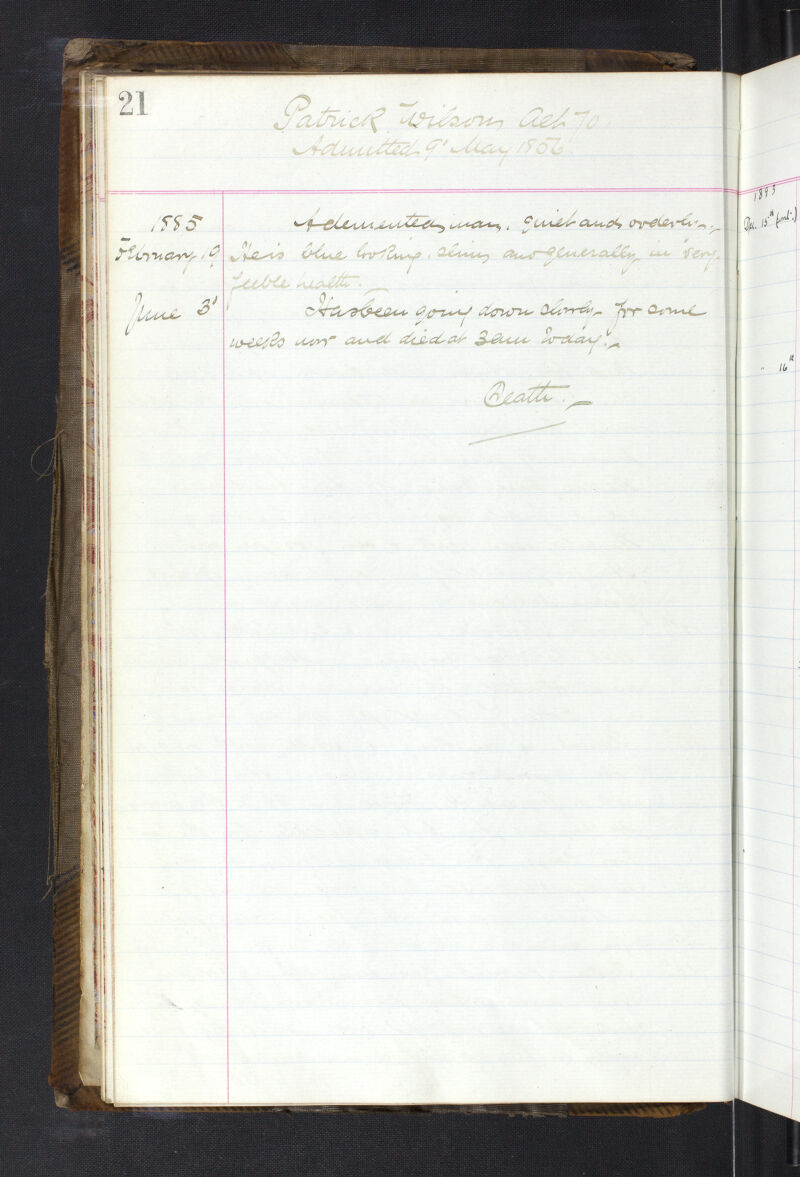 21
Patrick Wilson Aet 70.
Admitted 9' May 1856
1885
February 19 A demented man, quiet and orderly.
He is blue looking, and generally in very
feeble health.
June 3' Has been going down slowly for some
weeks now and died at 3am today.
Death.
1893
Dec. 15th (cont.)
" 16th